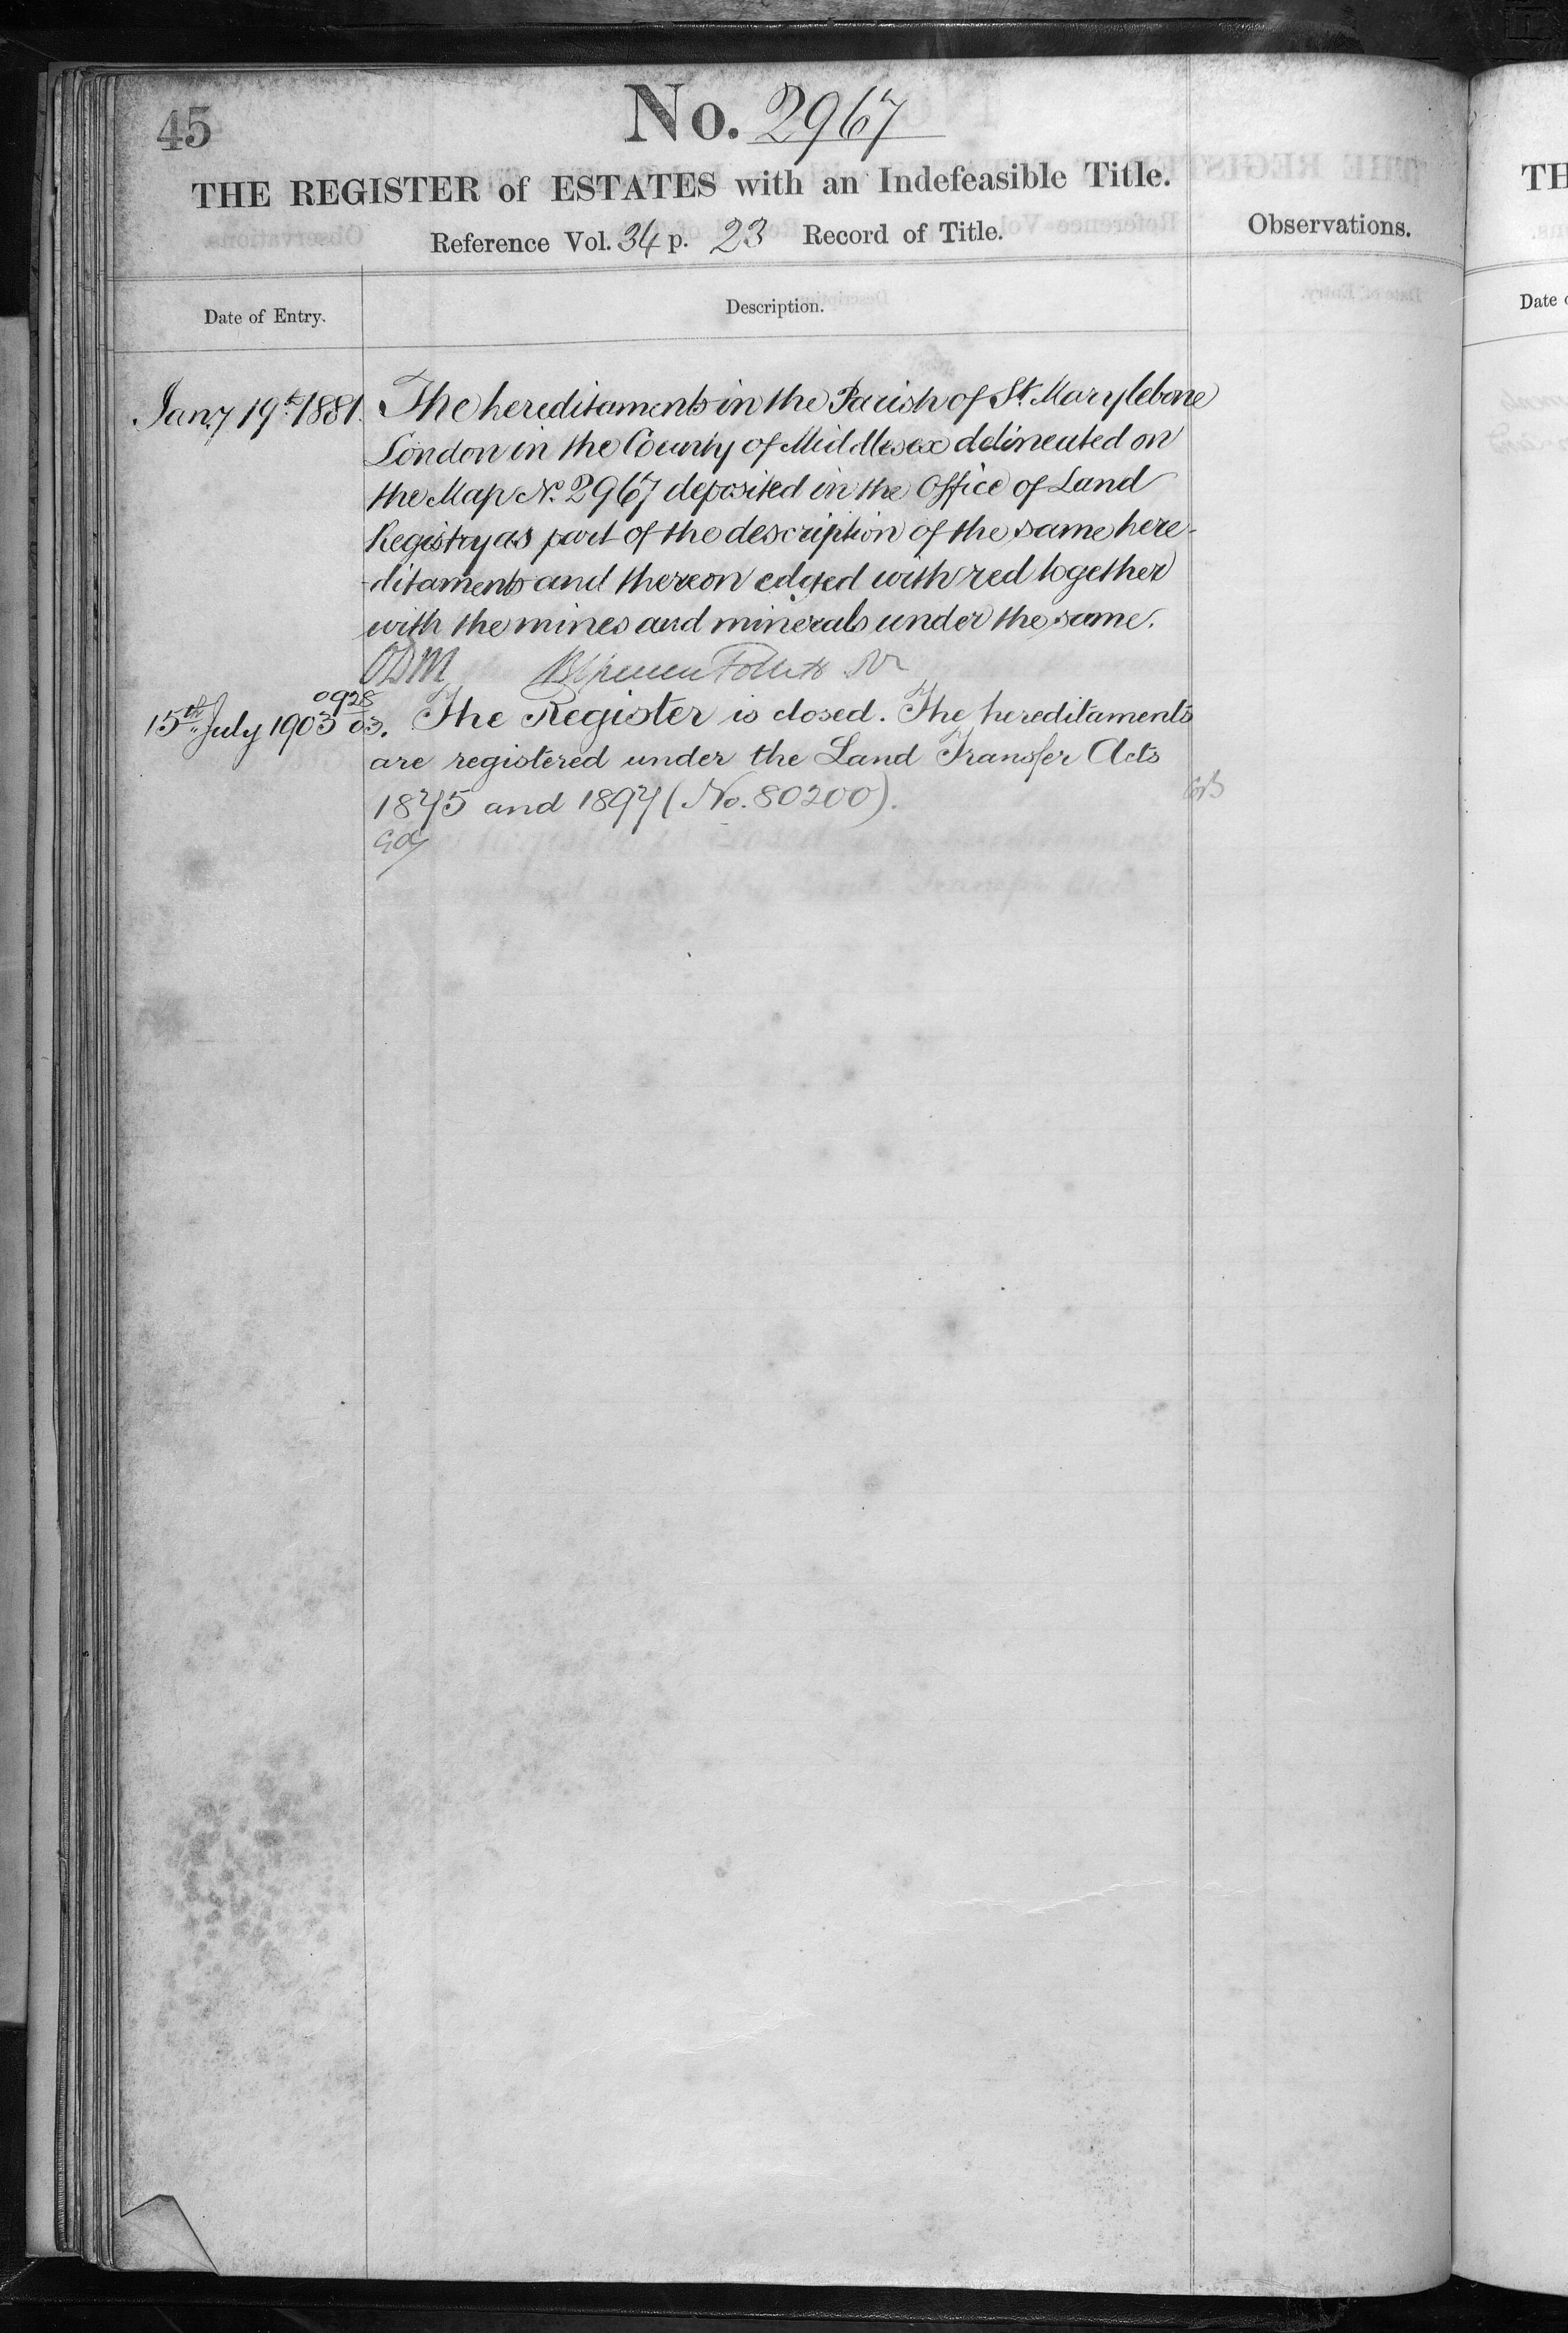 45
No. 2967
THE REGISTER of ESTATES with an Indefeasible Title.
Reference Vol. 34 p. 23 Record of Title.
Observations.
Date of Entry.
Description.
Jany 19th 1881. The hereditaments in the Parish of St. Marylebone
London in the County of Middlesex delineated on
the Map No. 2967 deposited in the Office of Land
Registry as part of the description of the same here-
-ditaments and thereon edged with red together
with the mines and minerals under the same.
ODM
0928
15th July 1903 03. The Register is closed. The hereditaments
are registered under the Land Transfer Acts
1875 and 1897 (No. 80200).
TH
Date